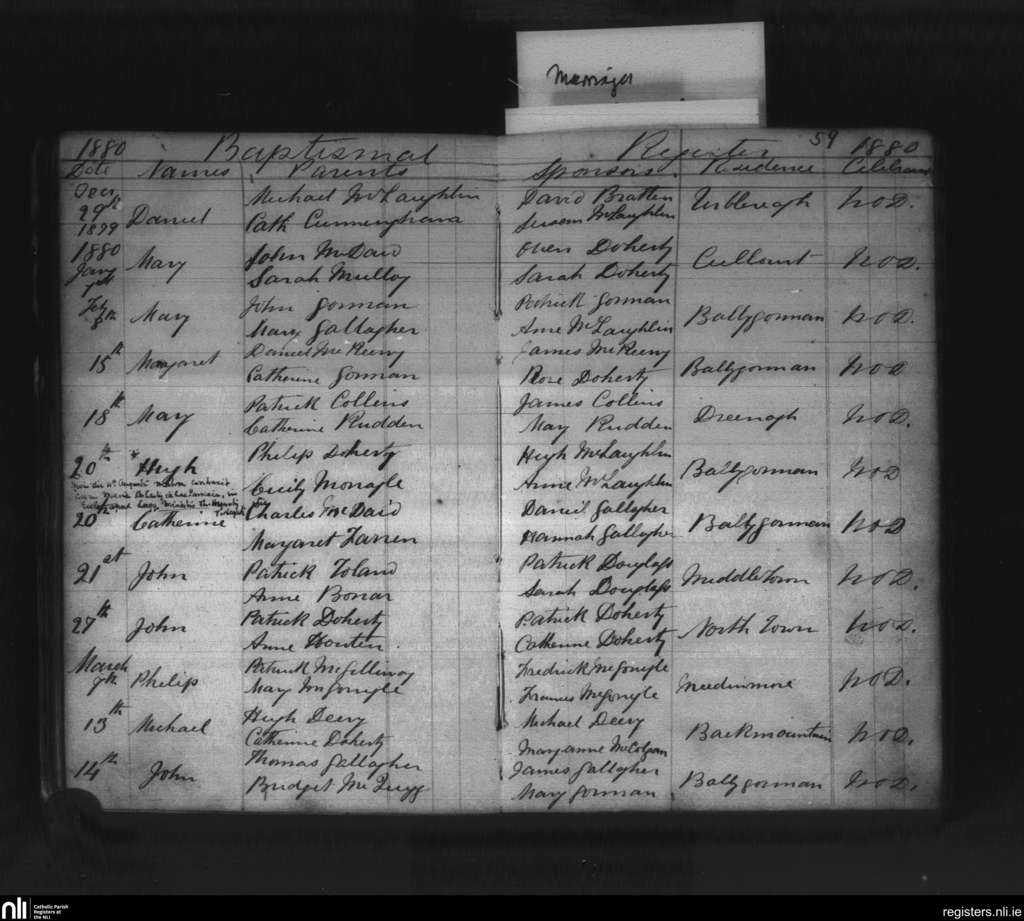 Marriages
1880 Baptismal Register 59 1880
Date Names Parents Sponsors Residence
Decr Michael McLaughlin David Bratten
29th Daniel Urblereagh N O D.
1879 Cath Cunningham Susan McLaughlin
1880 John McDaid Owen Doherty
Jany Mary Cullourt N O D.
Sarah Mulloy Sarah Doherty
Feb John Gorman Patrick Gorman
8th Mary Ballygorman N O D.
Mary Gallagher Anne McLaughlin
15th Margaret Daniel McKeeny James McKeeny Ballygorman N O D
Catherine Gorman Rose Doherty
18th Mary Patrick Collins James Collins Dreenagh N O D.
Catherine Rudden Mary Rudden
20th * Hugh Philip Doherty Hugh McLaughlin Ballygorman N O D
Cecily Monagle Anne McLaughlin
20th Catherine Charles McDaid Daniel Gallagher Ballygorman N O D
Margaret Farren Hannah Gallagher
21st John Patrick Toland Patrick Douglass Middletown N O D.
Anne Bonar Sarah Douglass
27th John Patrick Doherty Patrick Doherty North Town N O D.
Anne Houten Catherine Doherty
March Patrick McGillivoy Fredrick McGonigle
7th Philip Kneedinmore N O D.
Mary McGonigle Frances McGonigle
13th Michael Hugh Deeny Michael Deeny Backmountain N O D.
Catherine Doherty Maryanne McColgan
14th John Thomas Gallagher James Gallagher Ballygorman N O D.
Bridget McLugg Mary Gorman
nli Catholic Parish
Registers at
the NLI
registers.nli.ie